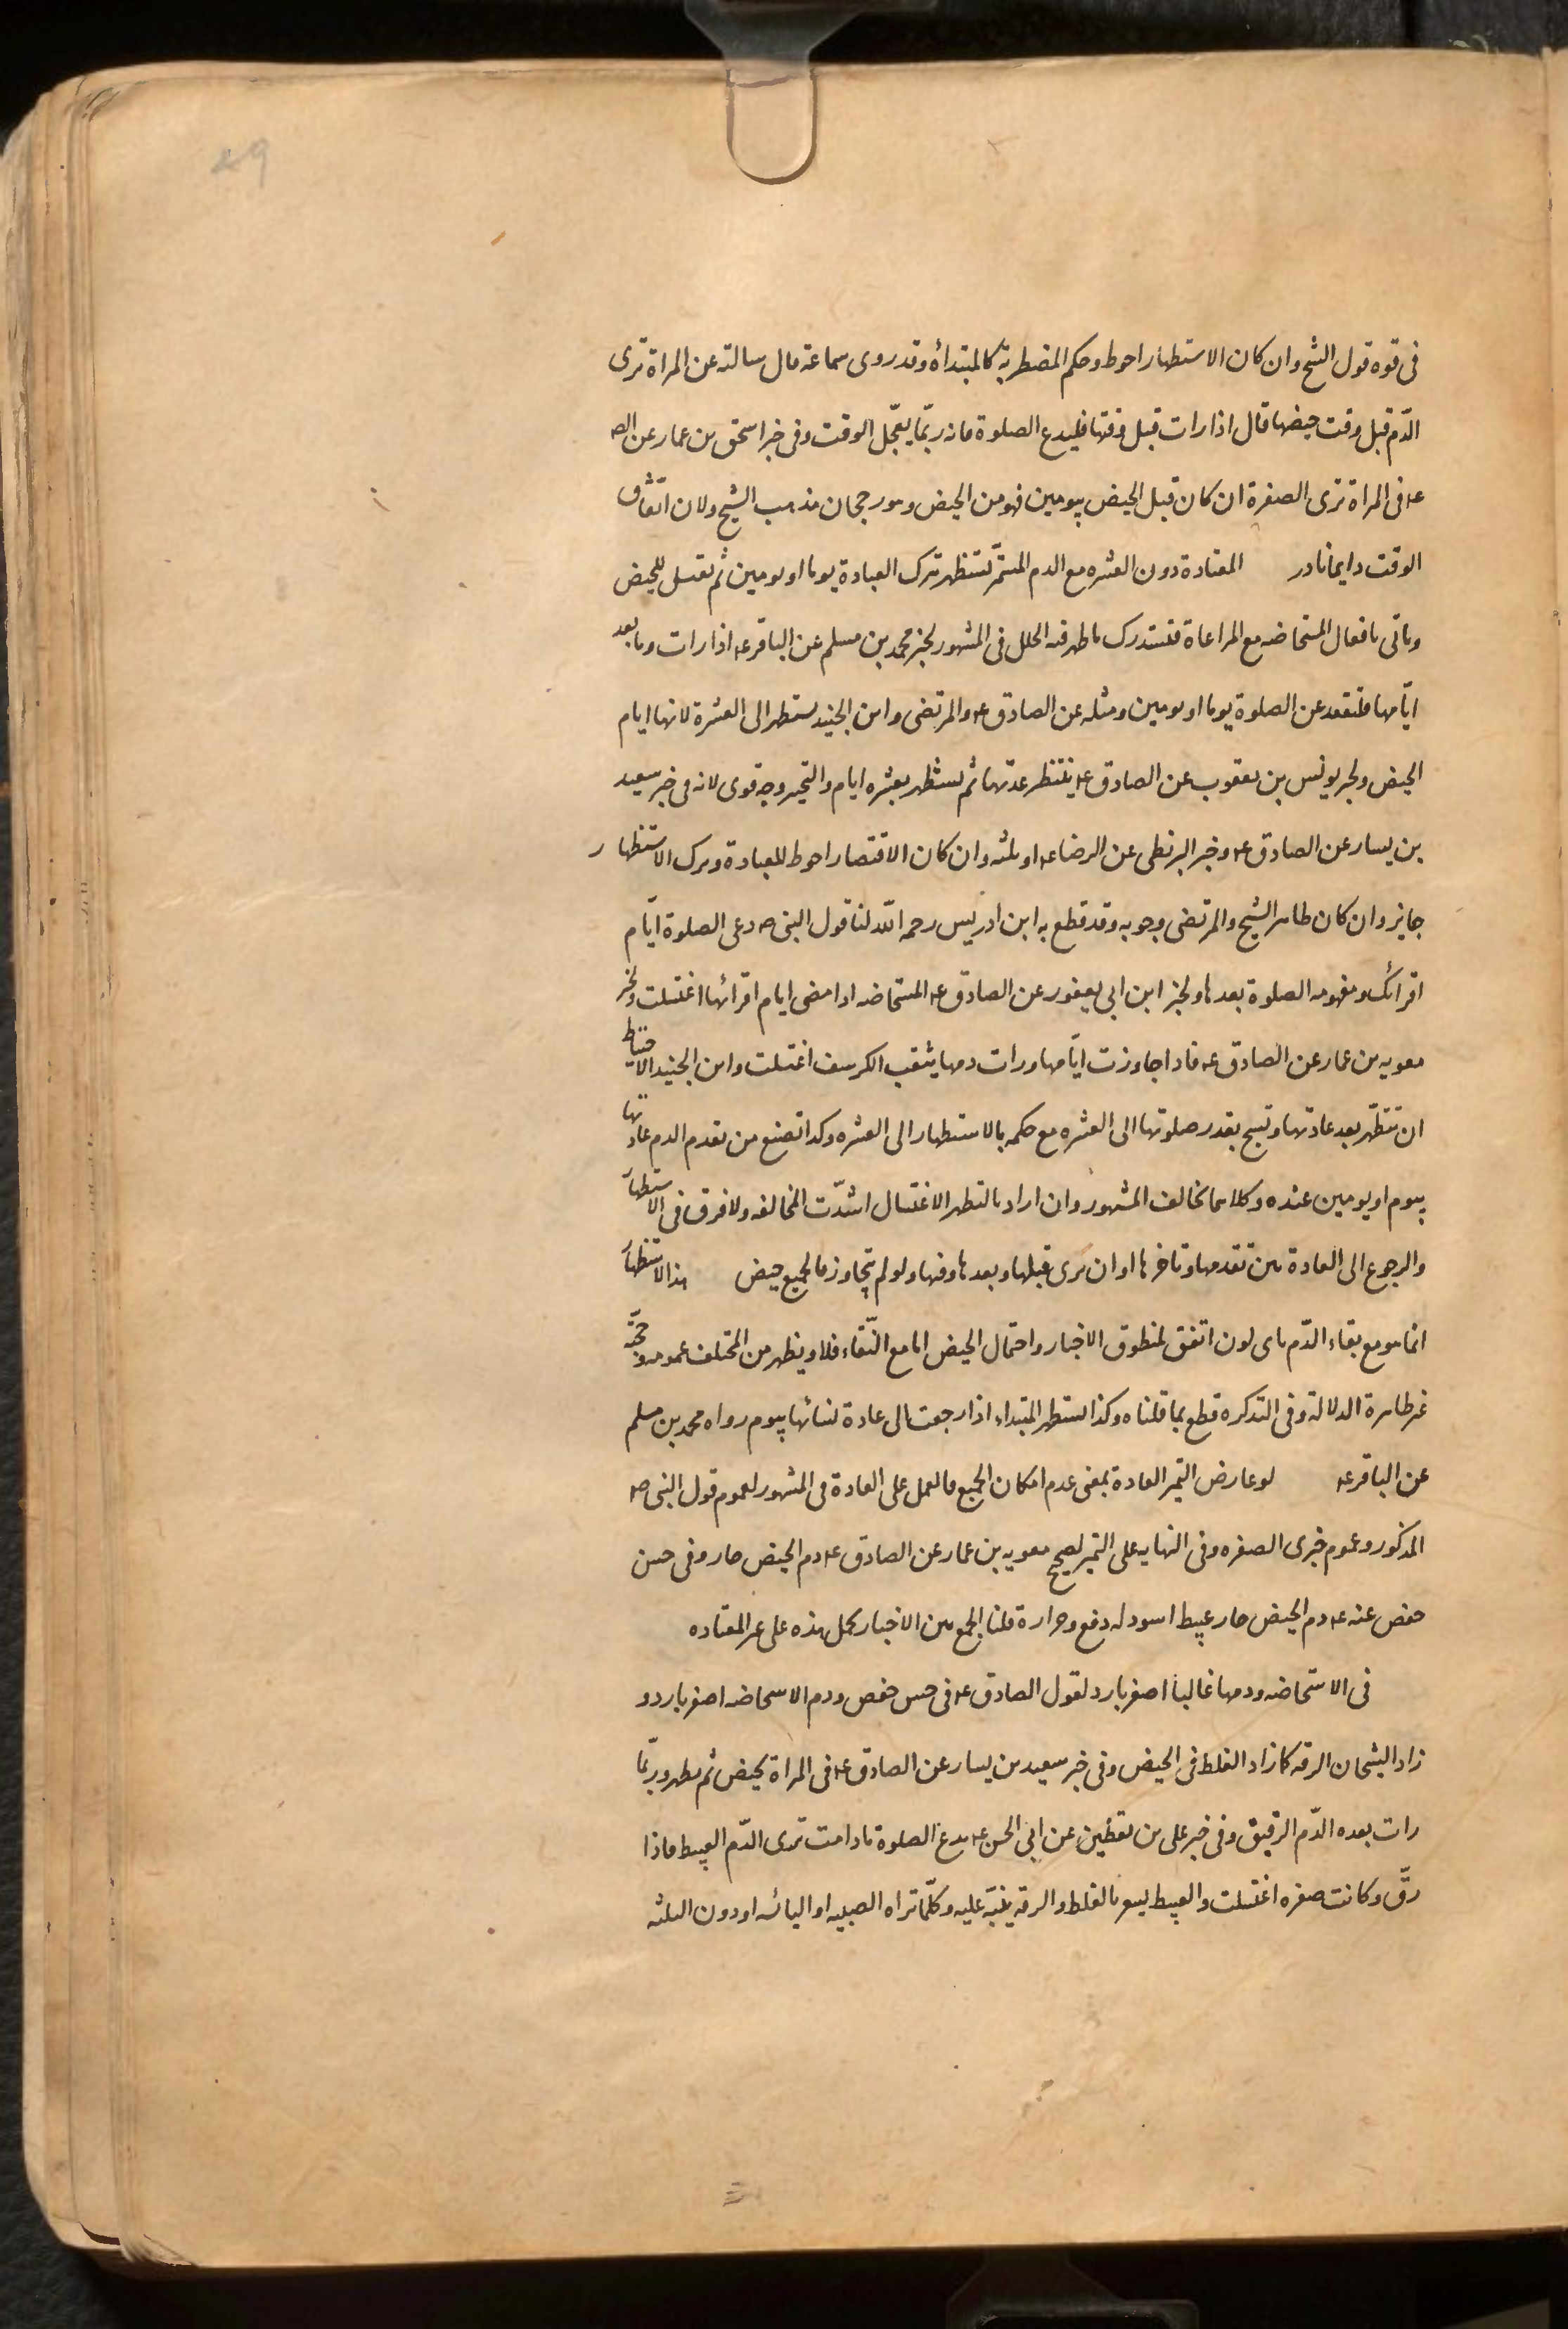 49
فى قوه قول الشيخ وان كان الاستظهار احوط وحكم المضطربة كالمبتدأة وقد روى سماعة قال سالته عن المراة ترى
الدّم قبل وقت حيضها قال اذا رات قبل وقتها فليدع الصلوة فانه ربّما يعجّل الوقت وفى خبر اسحق بن عمار عن الص
عه فى المراة ترى الصفرة ان كان قبل الحيض بيومين فهو من الحيض وهو رجحان مذهب الشيخ ولان اتفاق
الوقت دايما نادر المعتادة دون العشره مع الدم المستمرّ تستظهر بترك العبادة يوما او يومين ثم تغتسل للحيض
وتاتى بافعال المستحاضه مع المراعاة فتستدرك ما ظهر فيه الخلل فى المشهور لخبر محمد بن مسلم عن الباقر عه اذا رات دما بعد
ايّامها فلتقعد عن الصلوة يوما او يومين ومثله عن الصادق عه والمرتضى وابن الجنيد يستظهر الى العشرة لانها ايام
الحيض ولخبر يونس بن يعقوب عن الصادق عه تنتظر عدتها ثم تستظهر بعشره ايام والتخيير وجه قوى لانه فى خبر سعيد
بن يسار عن الصادق عه وخبر البزنطى عن الرضا عه او ثلثه وان كان الاقتصار احوط للعبادة وترك الاستظهار
جايز وان كان ظاهر الشيخ والمرتضى وجوبه وقد قطع به ابن ادريس رحمه الله لنا قول النبى ص دعى الصلوة ايّام
اقرائك ومفهومه الصلوة بعدها ولخبر ابن ابى يعفور عن الصادق عه المستحاضه اذا مضى ايام اقرائها اغتسلت ولخبر
معويه بن عمار عن الصادق عه فاذا جاوزت ايّامها ورات دمها يثقب الكرسف اغتسلت وابن الجنيد الاحتياط
ان تتطهّر بعد عادتها وتسبح بقدر صلوتها الى العشره مع حكمه بالاستظهار الى العشره وكذا تصنع من تقدم الدم عادتها
بيوم او يومين عنده وكلاهما يخالف المشهور وان اراد بالتطهر الاغتسال اشدّت المخالفه ولا فرق فى الاستظهار
والرجوع الى العادة بين تقدمها وتاخرها او ان ترى قبلها وبعدها وفيها ولو لم يتجاوز فالجميع حيض هذا الاستظهار
انما هو مع بقاء الدّم باى لون اتفق لمنطوق الاخبار واحتمال الحيض اما مع النّقاء فلا ويظهر من المختلف عمومه وحجّته
غير ظاهرة الدلالة وفى التذكره قطع بما قلناه وكذا تستظهر المبتداه اذا رجعت الى عادة نسائها بيوم رواه محمد بن مسلم
عن الباقر عه لو عارض التميز العادة بمعنى عدم امكان الجميع فالعمل على العادة فى المشهور لعموم قول النبى ص
المذكور وعموم خبرى الصفره وفى النهايه على التميز لصحيح معويه بن عمار عن الصادق عه دم الحيض حار وفى حسن
حفص عنه عه دم الحيض حار عبيط اسود له دفع وحرارة قلنا الجمع بين الاخبار بحمل هذه على غير المعتاده
فى الاستحاضه ودمها غالباً اصفر بارد لقول الصادق عه فى حسن حفص ودم الاستحاضه اصفر بارد و
زاد الشيخان الرقه كما زاد الغلظ فى الحيض وفى خبر سعيد بن يسار عن الصادق عه فى المراة تحيض ثم تطهر وربّما
رات بعده الدّم الرقيق وفى خبر على بن يقطين عن ابى الحسن عه تدع الصلوة ما دامت ترى الدّم العبيط فاذا
رقّ وكانت صفره اغتسلت والعبيط يشعر بالغلظ والرقه ينبّه عليه وكلّما تراه الصبيه او اليائسه او دون الثلثه